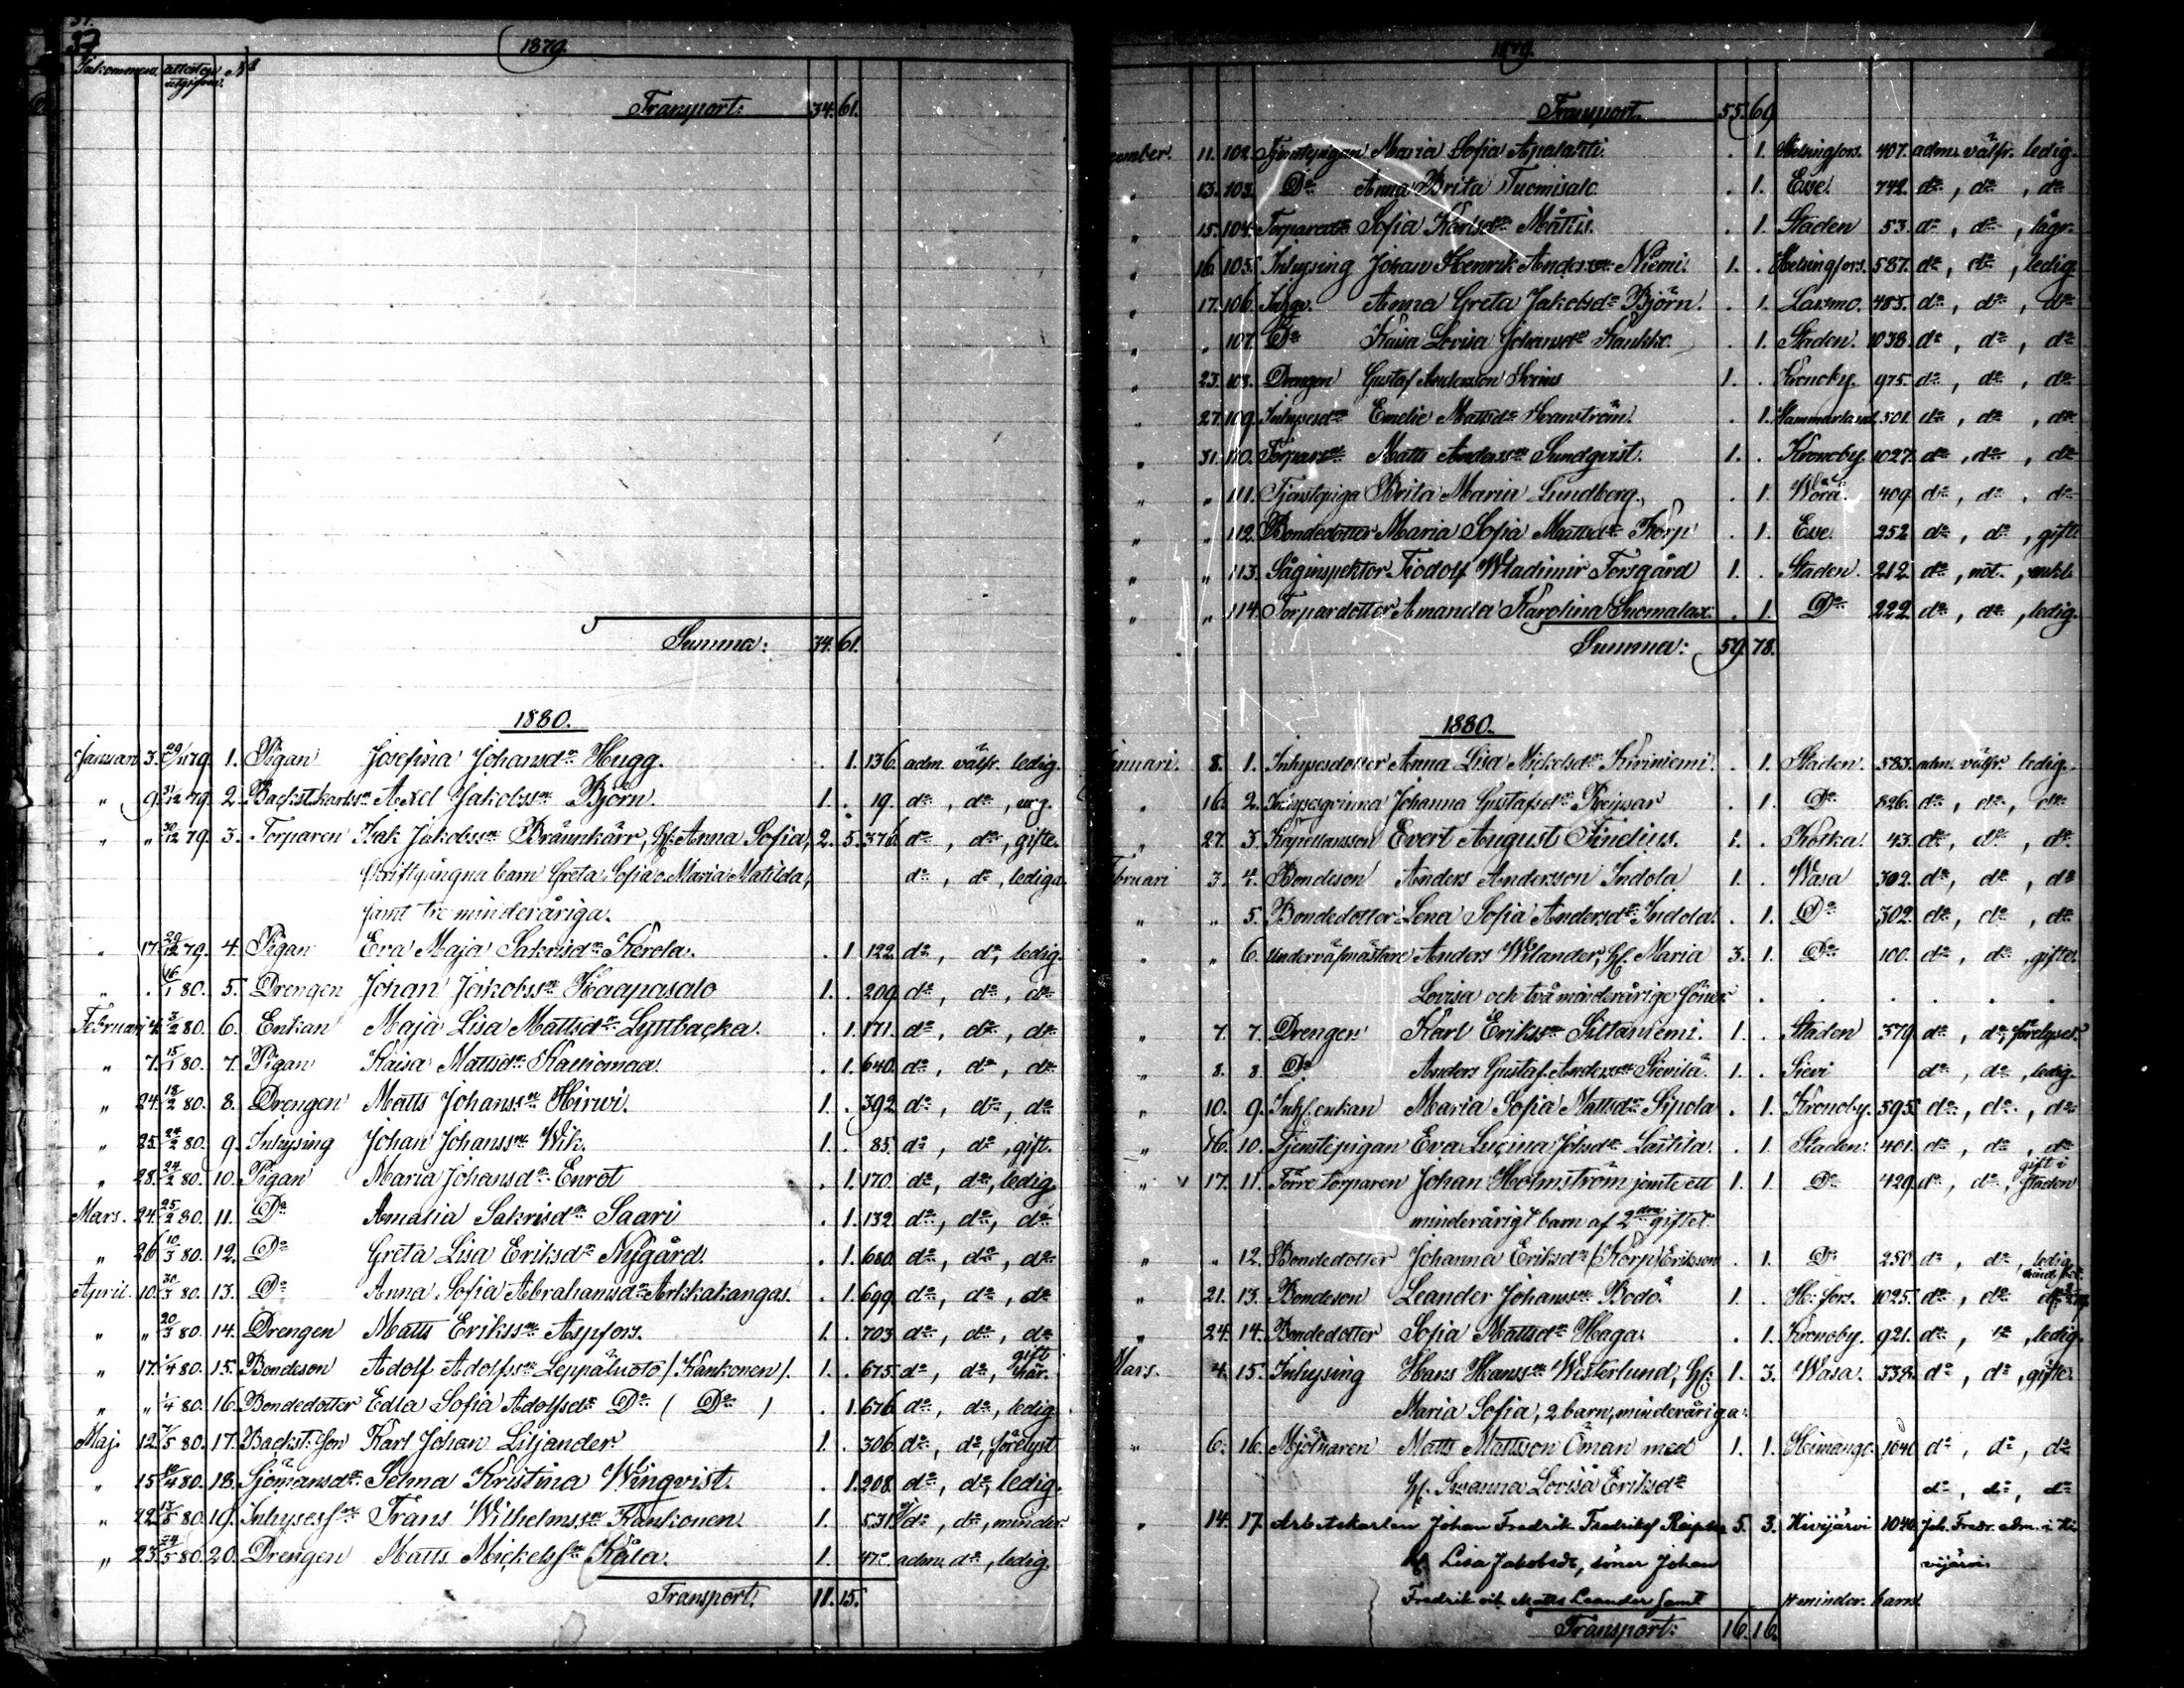 37.
37
1879.
Inkommen. attesten utgifven. No
Transport: 34. 61.
Summa: 34. 61.
1880.
Januari 3. 29/11 79. 1. Pigan Josefina Johansdr Hugg. . 1. 136. adm. välfr. ledig.
" 9. 31/12 79. 2. Backst.karlssn Axel Jakobssn Björn. 1. . 19. do, do, ung.
" " 30/12 79. 3. Torparen Isak Jakobssn Brännkärr, Hf. Anna Sofia, 2. 5. 376. do, do, gifte.
skriftgångna barn Greta Sofia o. Maria Matilda, do, do, lediga
samt tre minderåriga.
" 17. 29/12 79. 4. Pigan Eva Maja Sakrisdr Kerola. . 1 122. do, do, ledig.
" . 16/1 80. 5. Drengen Johan Jakobssn Haapasalo 1. . 209. do, do, do
Februari 4. 3/2 80. 6. Enkan Maja Lisa Mattsdr Lyttbacka. . 1. 171. do, do, do
" 7. 15/1 80. 7. Pigan Kaisa Mattsdr Kalliomaa. . 1. 640. do, do, do
" 24. 18/2 80. 8. Drengen Matts Johanssn Hirwi. 1. . 392. do, do, do
" 25. 24/2 80. 9. Inhysing Johan Johanssn Wik. 1. . 85. do, do, gift.
" 28. 24/2 80. 10. Pigan Maria Johansdr Enrot . 1. 170. do, do, ledig
Mars. 24. 25/2 80. 11. Do Amalia Sakrisdr Saari . 1. 132. do, do, do
" 26. 10/3 80. 12. Do Greta Lisa Eriksdr Nygård. . 1. 680. do, do, do
April. 10. 30/3 80. 13. Do Anna Sofia Abrahamsdr Arkkakangas. . 1. 699. do, do, do
" " 20/3 80. 14. Drengen Matts Erikssn Aspfors. 1. . 703. do, do, do
" 17. 1/4 80. 15. Bondeson Adolf Adolfssn Leppäluoto (Kankonen). 1. . 675. do, do, gift här.
" " 1/4 80. 16. Bondedotter Edla Sofia Adolfsdr Do ( Do ) . 1. 676. do, do, ledig
Maj. 12. 7/5 80. 17. Backst. son Karl Johan Liljander. 1. . 306. do, do, förelyst
" 15. 80. 18. Sjömansdr Selma Kristina Winqvist. . 1. 208. do, do, ledig.
" 22. 13/5 80. 19. Inhysessn Frans Wilhelmssn Kankonen. 1. 531. do, do, minder.
" 23. 24/5 80. 20. Drengen Matts Mickelssn Kåla. 1. 47. adm. do, ledig.
Transport: 11. 15.
1879.
Transport. 55. 69.
cember. 11. 102. Tjenstepigan Maria Sofia Apalahti. . 1. Helsingfors. 407. adm. välfr. ledig.
" 13. 103. Do Anna Brita Tuomisalo . 1. Esse. 742. do, do, do
" 15. 104. Torparedr Sofia Karlsdr Mattus. . 1. Staden 53. do, do, lägr.
" 16. 105. Inhysing Johan Henrik Anderssn Niemi. 1. . Helsingfors. 587. do, do, ledig
" 17. 106. Inhgn. Anna Greta Jakobsdr Björn. . 1. Larsmo. 483. do, do, do
" " 107. Do Kaisa Lovisa Johansdr Kaukko. . 1. Staden. 1038. do, do, do
" 23. 108. Drengen Gustaf Andersson Svins 1. . Kronoby. 975. do, do, do
" 27. 109. Inhysesdr Emelie Mattsdr Svanström. . 1. Hammarland. 501. do, do, do
" 31. 110. Torparessn Matts Anderssn Sundqvist. 1. . Kronoby. 1027. do, do, do
" " 111. Tjenstepiga Brita Maria Lundberg. . 1. Wörå. 409. do, do, do
" " 112. Bondedotter Maria Sofia Mattsdr Korp . 1. Esse. 252 do, do, gift.
" " 113. Såginspektor Fiodolf Wladimir Forsgård 1. . Staden. 212. do, nöt., enkl.
" " 114. Torpardotter Amanda Karolina Suomalax. . 1. Do 222. do, do, ledig.
Summa: 59. 78.
1880.
Januari. 8. 1. Inhysesdotter Anna Lisa Mickelsdr Kiviniemi. . 1. Staden. 583. adm. välfr. ledig.
" 16. 2. Inhysesqvinna Johanna Gustafsdr Reipsar . 1. Do 826. do, do, do
" 27. 3. Kapellansson Evert August Findius. 1. . Kotka. 43. do, do, do.
Februari 3. 4. Bondeson Anders Andersson Indola 1. . Wasa 302. do, do, do
" " 5. Bondedotter Lena Sofia Andersdr Indola. . 1. Do 302. do, do, do.
" " 6. Undervåfmästare Anders Wilander, Hf. Maria 3. 1. Do 100. do, do, gifte.
Lovisa och två minderårige söner . . . . .
" 7. 7. Drengen Karl Erikssn Siltaniemi. 1. . Staden 379. do, do, förelyset.
" 8. 8. Do Anders Gustaf Anderssn Sievilä 1. . Sievi do, do, ledig.
" 10. 9. Inhs.enkan Maria Sofia Mattsdr Sipola . 1. Kronoby. 595. do, do, do
" 16. 10. Tjenstepigan Eva Lucina Johsdr Lastila. . 1. Staden. 401. do, do, do
" v 17. 11. Förre torparen Johan Holmström jemte ett 1. 1. Do 429. do, do, gift i Staden
minderårigt barn af 2dra giftet.
" " 12. Bondedotter Johanna Eriksdr (Korp) Eriksson . 1. Do 250. do, do, ledig
" 21. 13. Bondeson Leander Johanssn Bodö. 1. . H:fors. 1025. do, do
" 24. 14. Bondedotter Sofia Mattsdr Haga . 1. Kronoby. 921. do, do, ledig.
Mars. 4. 15. Inhysing Hans Hanssn Westerlund, Hf. 1. 3. Wasa. 332. do, do, gifte.
Maria Sofia, 2 barn, minderåriga.
" 6. 16. Mjölnaren Matts Mattsson Öman med 1. 1. Heimango. 1640 do, do, do
Hf. Susanna Lovisa Eriksdr do, do, do
" 14. 17. Arbetskarlen Johan Fredrik Fredrikss Reipsar 5. 3. Kivijärvi 1040. Joh. Fredr. adm. i Ki-
Hf. Lisa Jakobsdr, söner Johan vijärvi
Fredrik och Matts Leander samt 4 minder. barn.
Transport: 16. 16.